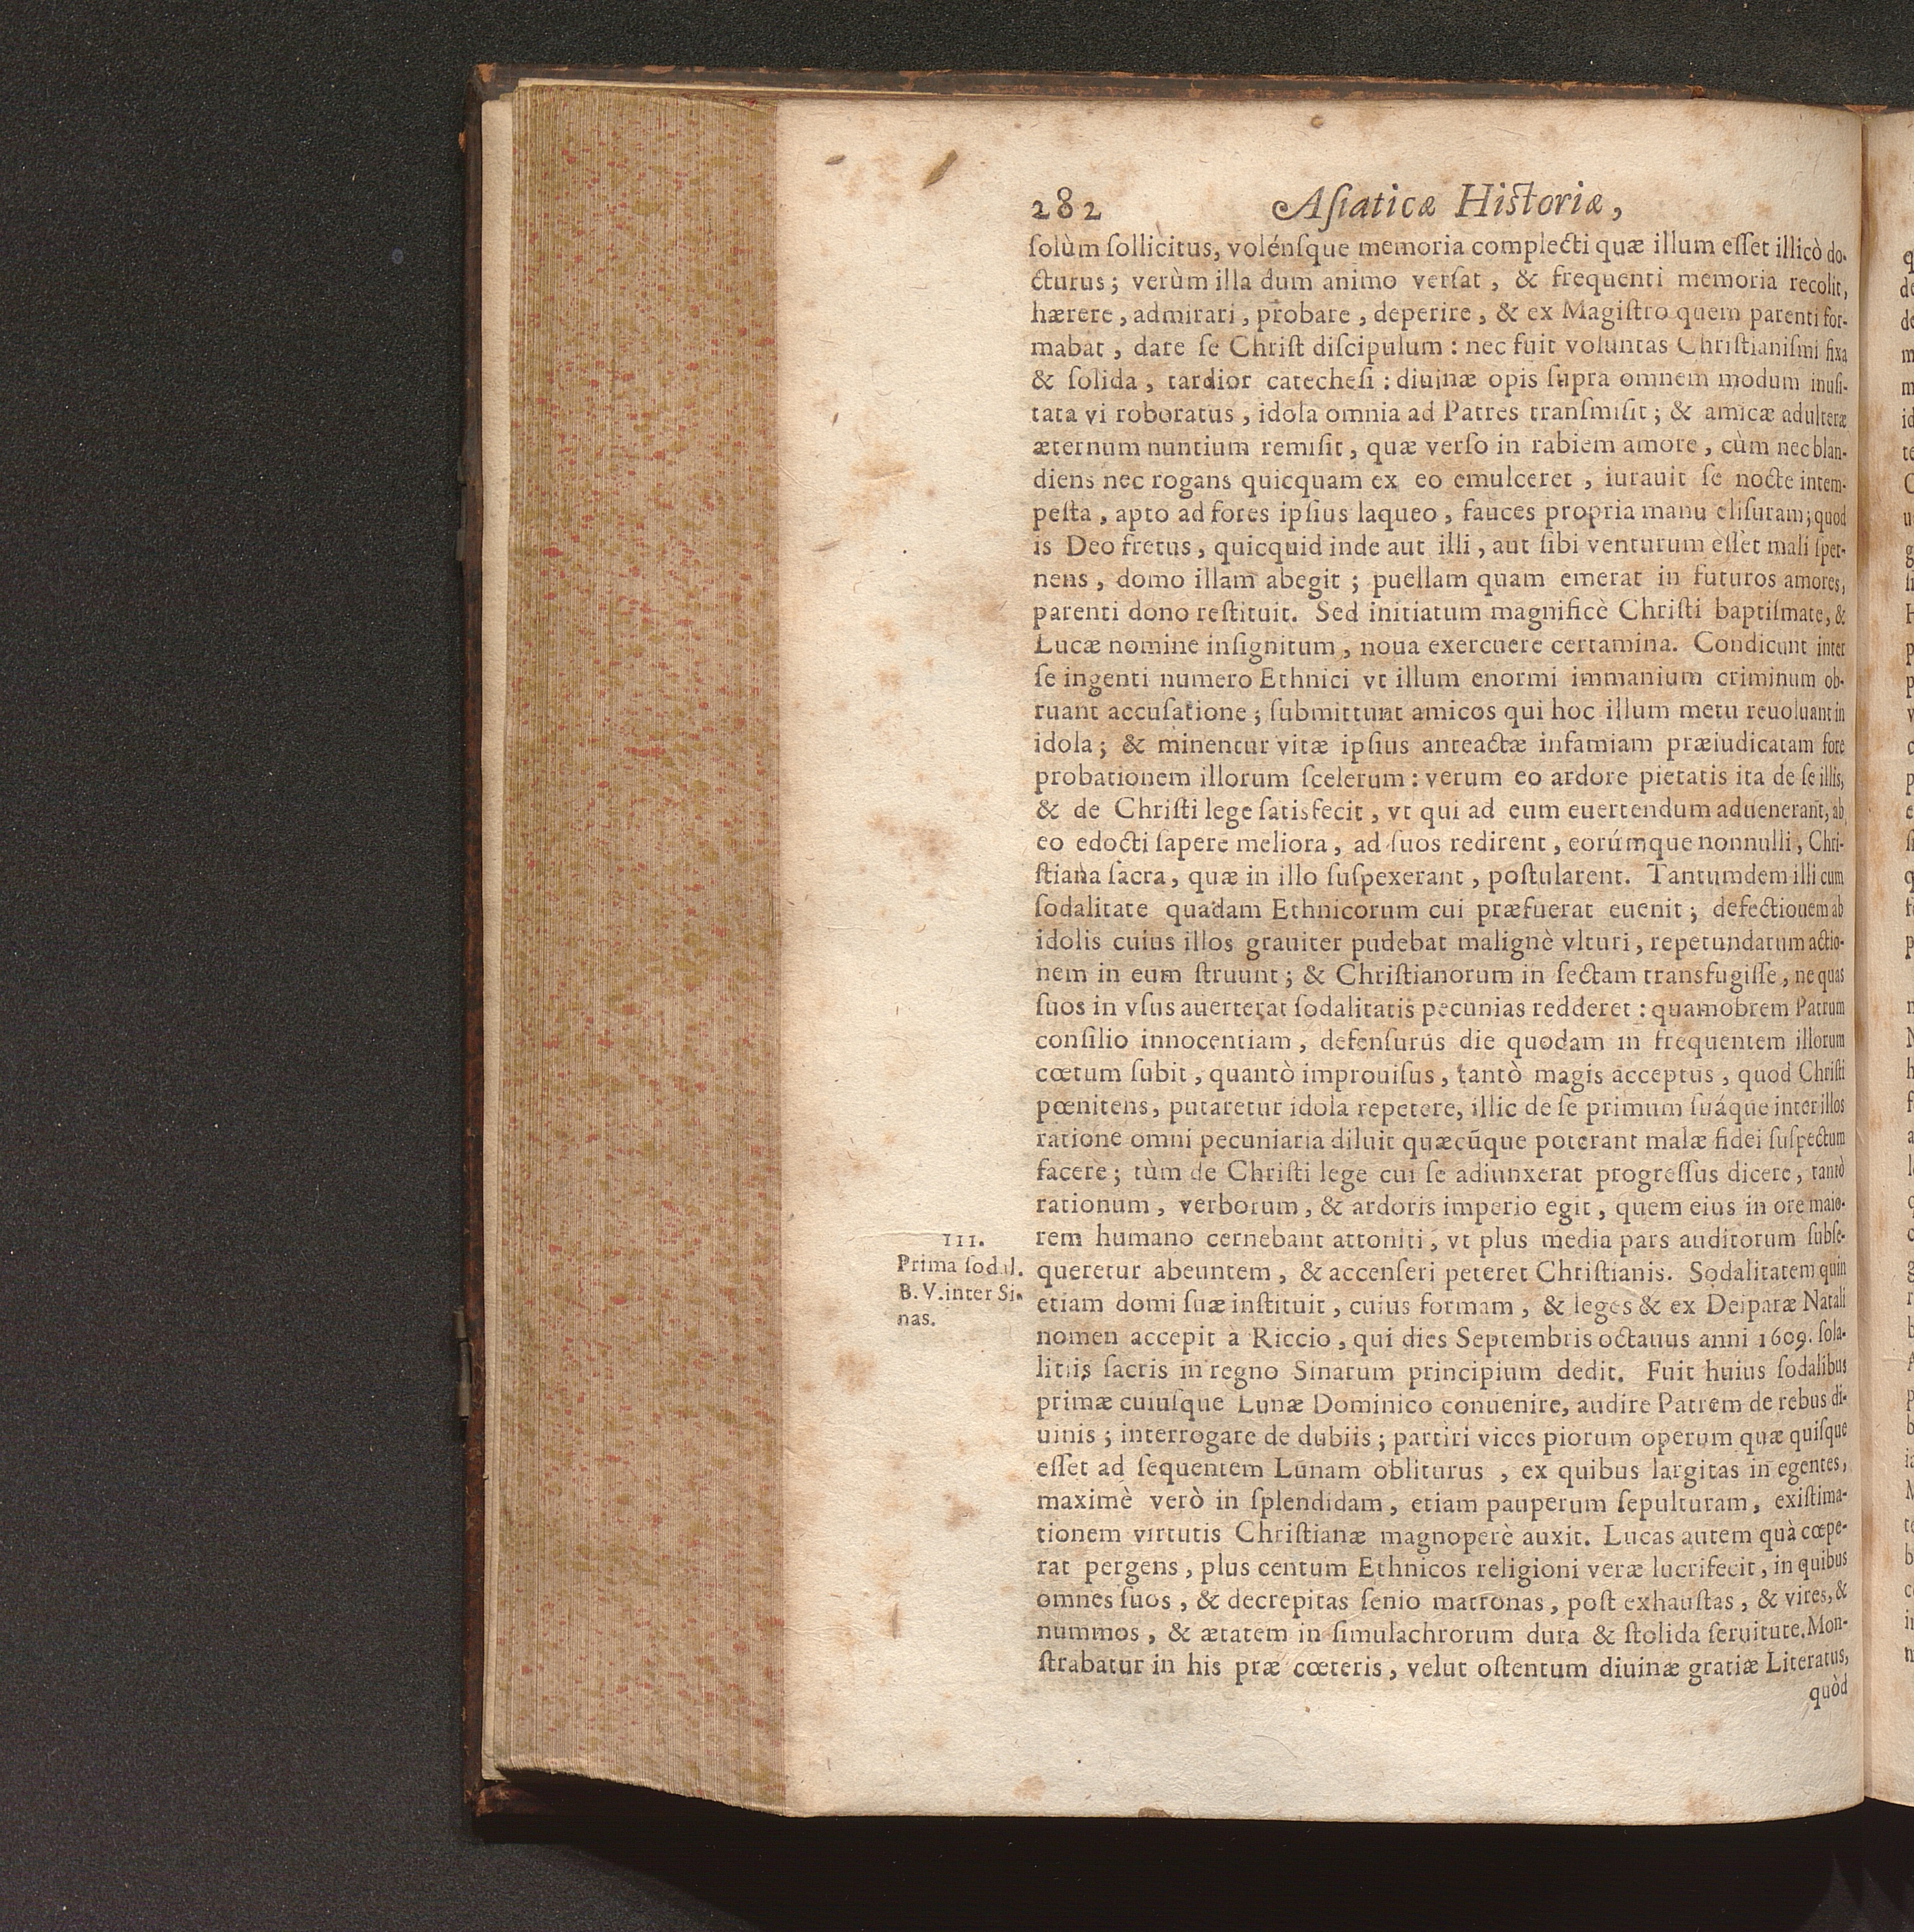 282 Aſiaticæ Hiſtoriæ,
ſolùm ſollicitus, volénſque memoria complecti quæ illum eſſet illicò do-
cturus; verùm illa dum animo verſat, & frequenti memoria recolit,
hærere, admirari, probare, deperire, & ex Magiſtro quem parenti for-
mabat, dare ſe Chriſt diſcipulum : nec fuit voluntas Chriſtianiſmi fixa
& ſolida, tardior catecheſi : diuinæ opis ſupra omnem modum inuſi-
tata vi roboratus, idola omnia ad Patres tranſmiſit; & amicæ adulteræ
æternum nuntium remiſit, quæ verſo in rabiem amore, cùm nec blan-
diens nec rogans quicquam ex eo emulceret, iurauit ſe nocte intem-
peſta, apto ad fores ipſius laqueo, fauces propria manu eliſuram; quod
is Deo fretus, quicquid inde aut illi, aut ſibi venturum eſſet mali ſper-
nens, domo illam abegit; puellam quam emerat in futuros amores,
parenti dono reſtituit. Sed initiatum magnificè Chriſti baptiſmate, &
Lucæ nomine inſignitum, noua exercuere certamina. Condicunt inter
ſe ingenti numero Ethnici vt illum enormi immanium criminum ob-
ruant accuſatione; ſubmittunt amicos qui hoc illum metu reuoluant in
idola; & minentur vitæ ipſius anteactæ infamiam præiudicatam fore
probationem illorum ſcelerum : verum eo ardore pietatis ita de ſe illis,
& de Chriſti lege ſatisfecit, vt qui ad eum euertendum aduenerant, ab
eo edocti ſapere meliora, ad ſuos redirent, eorúmque nonnulli, Chri-
ſtiana ſacra, quæ in illo ſuſpexerant, poſtularent. Tantumdem illi cum
ſodalitate quadam Ethnicorum cui præfuerat euenit; defectiouem ab
idolis cuius illos grauiter pudebat malignè vlturi, repetundarum actio-
nem in eum ſtruunt; & Chriſtianorum in ſectam transfugiſſe, ne quas
ſuos in vſus auerterat ſodalitatis pecunias redderet : quamobrem Patrum
conſilio innocentiam, defenſurus die quodam in frequentem illorum
cœtum ſubit, quantò improuiſus, tantò magis acceptus, quod Chriſti
pœnitens, putaretur idola repetere, illic de ſe primum ſuáque inter illos
ratione omni pecuniaria diluit quæcũque poterant malæ fidei ſuſpectum
facere; tùm de Chriſti lege cui ſe adiunxerat progreſſus dicere, tantò
rationum, verborum, & ardoris imperio egit, quem eius in ore maio-
rem humano cernebant attoniti, vt plus media pars auditorum ſubſe-
queretur abeuntem, & accenſeri peteret Chriſtianis. Sodalitatem quin
etiam domi ſuæ inſtituit, cuius formam, & leges & ex Deiparæ Natali
nomen accepit à Riccio, qui dies Septembris octauus anni 1609. ſola-
litiis ſacris in regno Sinarum principium dedit. Fuit huius ſodalibus
primæ cuiuſque Lunæ Dominico conuenire, audire Patrem de rebus di-
uinis; interrogare de dubiis; partiri vices piorum operum quæ quiſque
eſſet ad ſequentem Lunam obliturus, ex quibus largitas in egentes,
maximè verò in ſplendidam, etiam pauperum ſepulturam, exiſtima-
tionem virtutis Chriſtianæ magnoperè auxit. Lucas autem quà cœpe-
rat pergens, plus centum Ethnicos religioni veræ lucrifecit, in quibus
omnes ſuos, & decrepitas ſenio matronas, poſt exhauſtas, & vires, &
nummos, & ætatem in ſimulachrorum dura & ſtolida ſeruitute. Mon-
ſtrabatur in his præ cœteris, velut oſtentum diuinæ gratiæ Literatus,
quòd
III.
Prima ſodal.
B. V. inter Si-
nas.